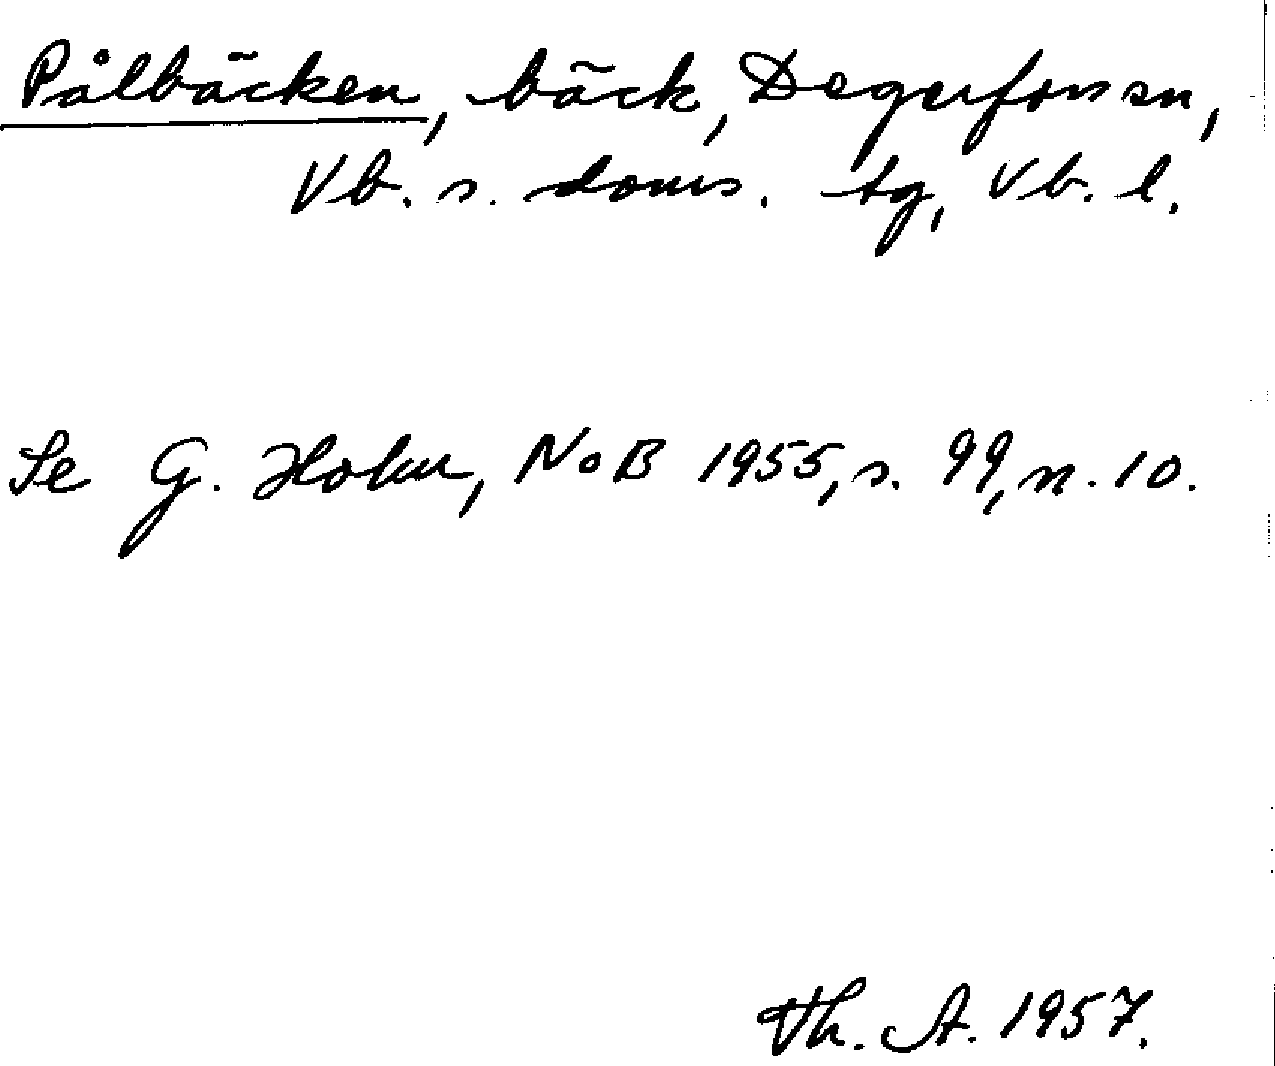 Pålbäcken, bäck, Degerfors sn,
Vb. s. doms. tg, Vb. l.
Se G. Holm, NoB 1955, s. 99, n. 10.
Th. A. 1957.